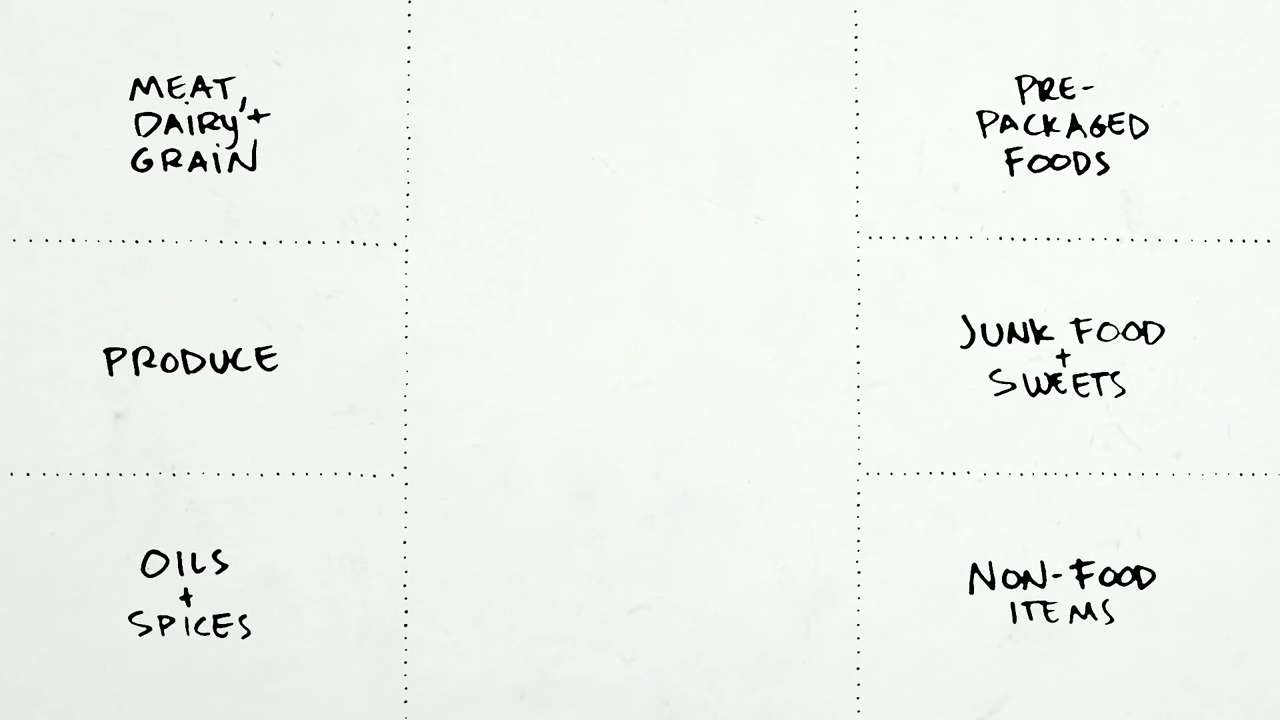 MEAT,
DAIRY +
GRAIN
PRODUCE
OILS
+
SPICES
PRE-
PACKAGED
FOODS
JUNK FOOD
+
SWEETS
NON-FOOD
ITEMS